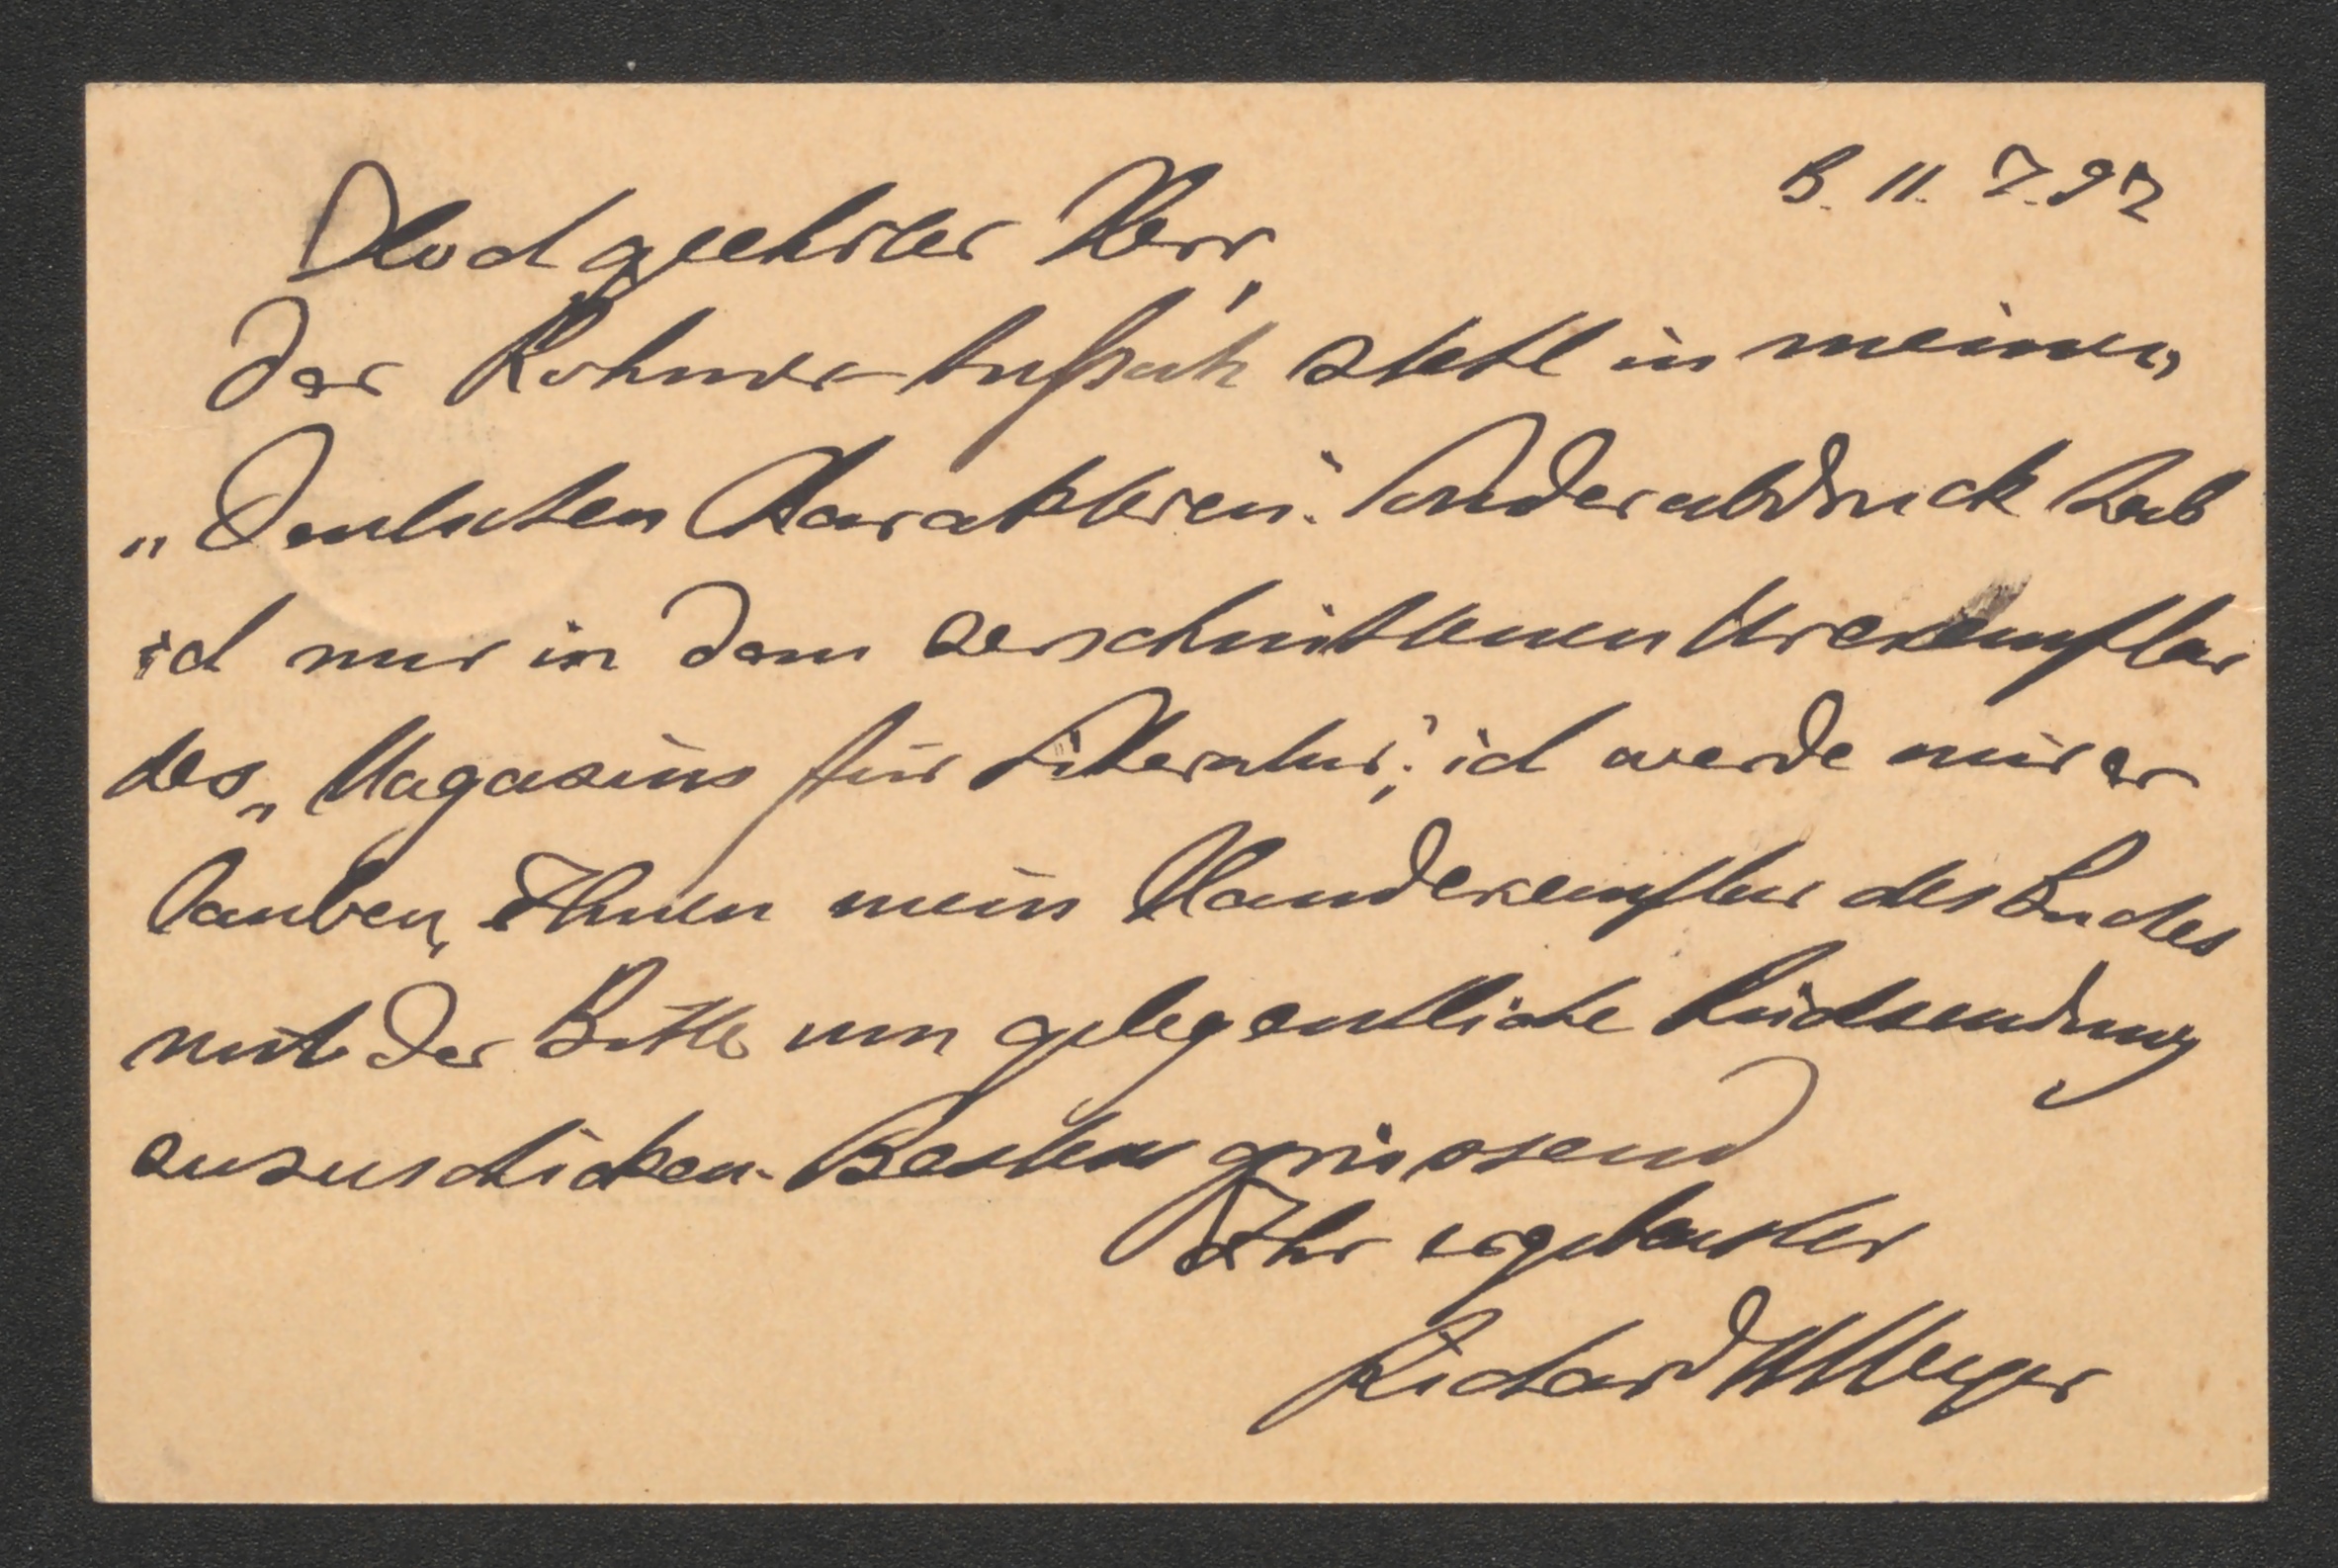 B. 11. 7. 97
Hochgeehrter Herr,
der Rohmer-Aufsatz steht in meinen
„Deutschen Charakteren“. Sonderabdruck hab
ich nur in dem zerschnittenen Urexemplar
des „Magazins für Litteratur“; ich werde mir er
lauben, Ihnen mein Handexemplar des Buches
mit der Bitte um gelegentliche Rücksendung
zuzuschicken. Bestens grüssend
Ihr ergebenster
Richard M Meyer